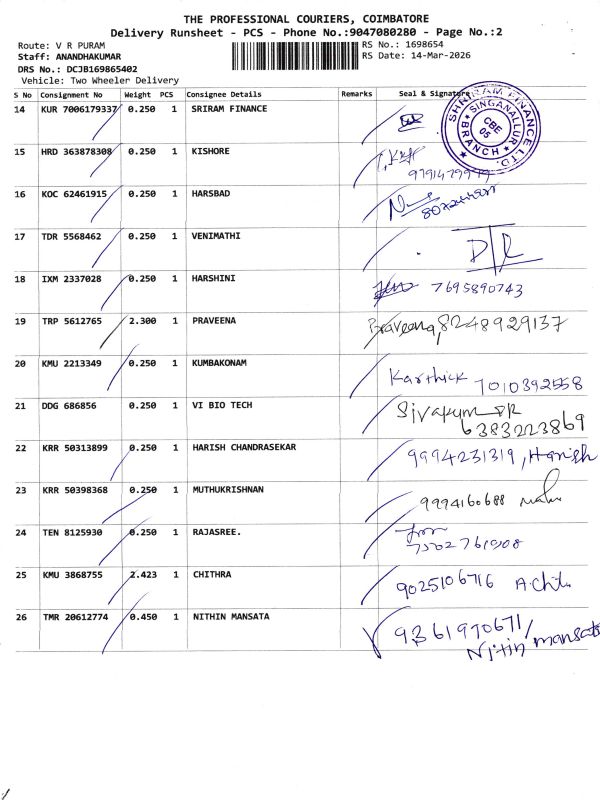 THE PROFESSIONAL COURIERS, COIMBATORE
Delivery Runsheet - PCS - Phone No.:9047080280 - Page No.:2
Route: V R PURAM
RS No.: 1698654
Staff: ANANDHAKUMAR
RS Date: 14-Mar-2026
DRS No.: DCJB169865402
Vehicle: Two Wheeler Delivery
S No Consignment No Weight PCS Consignee Details Remarks Seal & Signature
14 KUR 7006179337 0.250 1 SRIRAM FINANCE
SHRIRAM FINANCE LTD.
SINGANALLUR
CBE
05
★ BRANCH ★
15 HRD 363878308 0.250 1 KISHORE
16 KOC 62461915 0.250 1 HARSBAD
17 TDR 5568462 0.250 1 VENIMATHI
18 IXM 2337028 0.250 1 HARSHINI 7695890743
19 TRP 5612765 2.300 1 PRAVEENA Praveena, 8248929137
20 KMU 2213349 0.250 1 KUMBAKONAM Karthick 7010392558
21 DDG 686856 0.250 1 VI BIO TECH
6383223869
22 KRR 50313899 0.250 1 HARISH CHANDRASEKAR 9994231319, Harish
23 KRR 50398368 0.250 1 MUTHUKRISHNAN 9994160688
24 TEN 8125930 0.250 1 RAJASREE.
25 KMU 3868755 2.423 1 CHITHRA 9025106716
26 TMR 20612774 0.450 1 NITHIN MANSATA 9361990671/
Nitin mansata